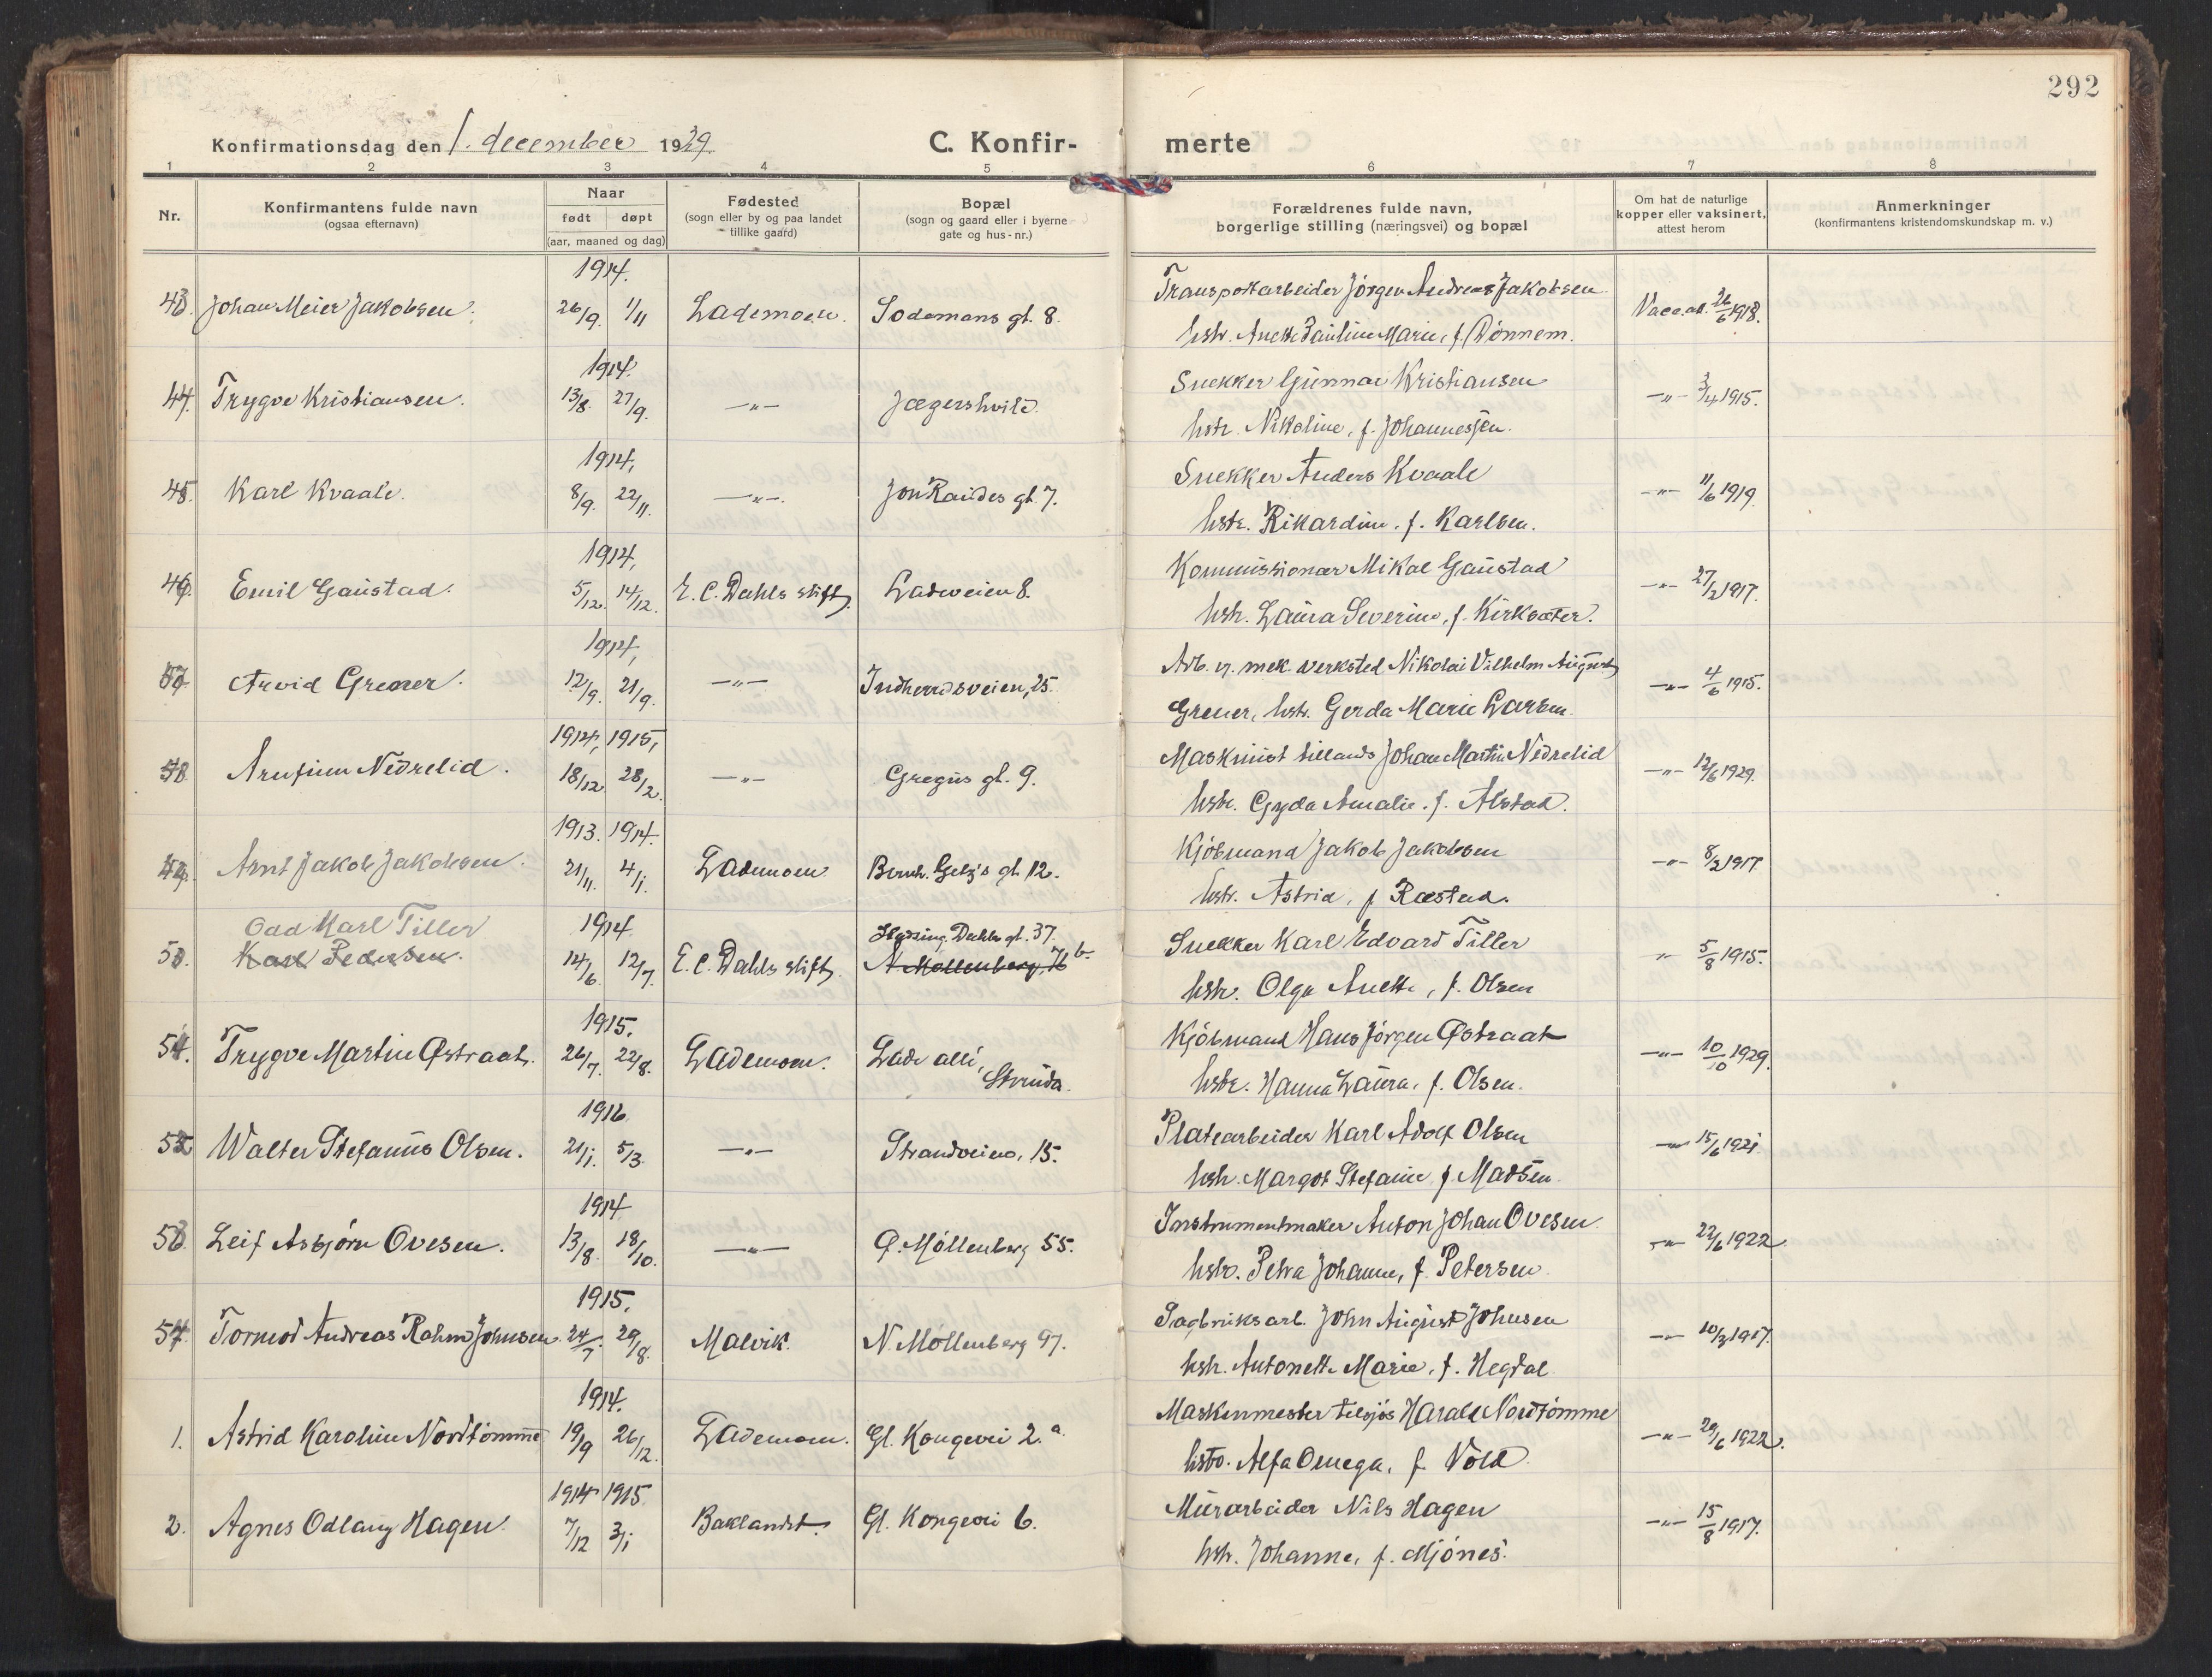 292
Konfirmationsdag den 1. december 1929. C. Konfirmerte
1 2 3 4 5 6 7 8
Nr.
Konfirmantens fulde navn
(ogsaa efternavn)
Naar
født døpt
(aar, maaned og dag)
Fødested
(sogn eller by og paa landet
tillike gaard)
Bopæl
(sogn og gaard eller i byerne
gate og hus-nr.)
Forældrenes fulde navn,
borgerlige stilling (næringsvei) og bopæl
Om hat de naturlige
kopper eller vaksinert,
attest herom
Anmerkninger
(konfirmantens kristendomskundskap m. v.)
1914.
43. Johan Meier Jakobsen. 26/9. 1/11 Lademoen. Sodemans gt. 8. Transportarbeider Jörgen Andreas Jakobsen Vacc.att. 26/6 1918.
hstr. Anette Pauline Marie, f. Rönnem.
1914.
44. Trygve Kristiansen. 13/8. 27/9. —"— Jægershvile. Snekker Gunnar Kristiansen —"— 3/4 1915.
hstr. Nikoline, f. Johannessen.
1914,
45. Karl Kvaale. 8/9. 22/11. —"— Jon Raudes gt. 7. Snekker Anders Kvaale —"— 11/6 1919.
hstr. Rikardine, f. Karlsen.
1914,
46. Emil Gaustad. 5/12. 14/12. E. C. Dahls stift. Ladeveien 8. Kommissionær Mikal Gaustad —"— 27/2 1917.
hstr. Laura Severine, f. Kirksæter.
1914,
47. Arvid Grener. 12/9. 21/9. —"— Indherredsveien, 25. Arb. v. mek. verksted Nikolai Vilhelm August —"— 4/6 1915.
Grener, hstr. Gerda Marie Larsen.
1914, 1915,
48. Arnfinn Nedrelid. 18/12 28/2. —"— Gregus gt. 9. Maskinist tillands Johan Martin Nedrelid —"— 12/6 1929.
hstr. Gyda Amalie, f. Alstad.
1913. 1914.
49. Arnt Jakob Jakobsen. 21/11. 4/1. Lademoen Bernh. Getz's gt. 12. Kjöbmand Jakob Jakobsen —"— 8/2 1917
hstr. Astrid, f. Ræstad.
Odd Karl Tiller 1914 Hydsing Dahls gt. 37.
50. Karl Pedersen. 14/6. 12/7. E. C. Dahls stift. N. Mollenberg 76 b. Snekker Karl Edvard Tiller " 5/8 1915.
hstr. Olga Anette, f. Olsen
1915.
51. Trygve Martin Østraat. 26/7. 22/8. Lademoen. Lade allé, Kjöbmand Hans Jörgen Østraat —"— 10/10 1929.
Strinda. hstr. Hanna Laura, f. Olsen.
1916
52 Walter Stefanus Olsen. 21/1. 5/3. —"— Strandveien, 15. Platearbeider Karl Adolf Olsen —"— 15/6 1921.
hstr. Margot Stefanie f. Madsen
1914
53. Leif Asbjörn Ovesen. 13/8. 18/10. —"— Ø. Möllenberg 55. Instrumentmaker Anton Johan Ovesen —"— 22/6 1922.
hstr. Petra Johanne, f. Petersen
1915.
54. Tormod Andreas Rahm Johnsen 24/7. 29/8. Malvik. N. Möllenberg 97. Sagbruksarb. John August Johnsen —"— 10/3 1917.
hstr. Antonette Marie, f. Hegdal
1914.
1. Astrid Karoline Nordtömme 19/9 26/12. Lademoen. Gl. Kongevei 2.a Maskinmester tilsjös Harald Nordtömme —"— 29/6 1922.
hstr. Alfa Omega, f. Vold.
1914 1915
2. Agnes Odlaug Hagen. 7/12 3/1 Baklandet. Gl. Kongevei 6. Murarbeider Nils Hagen —"— 15/8 1917.
hstr. Johanne, f. Mjönes.